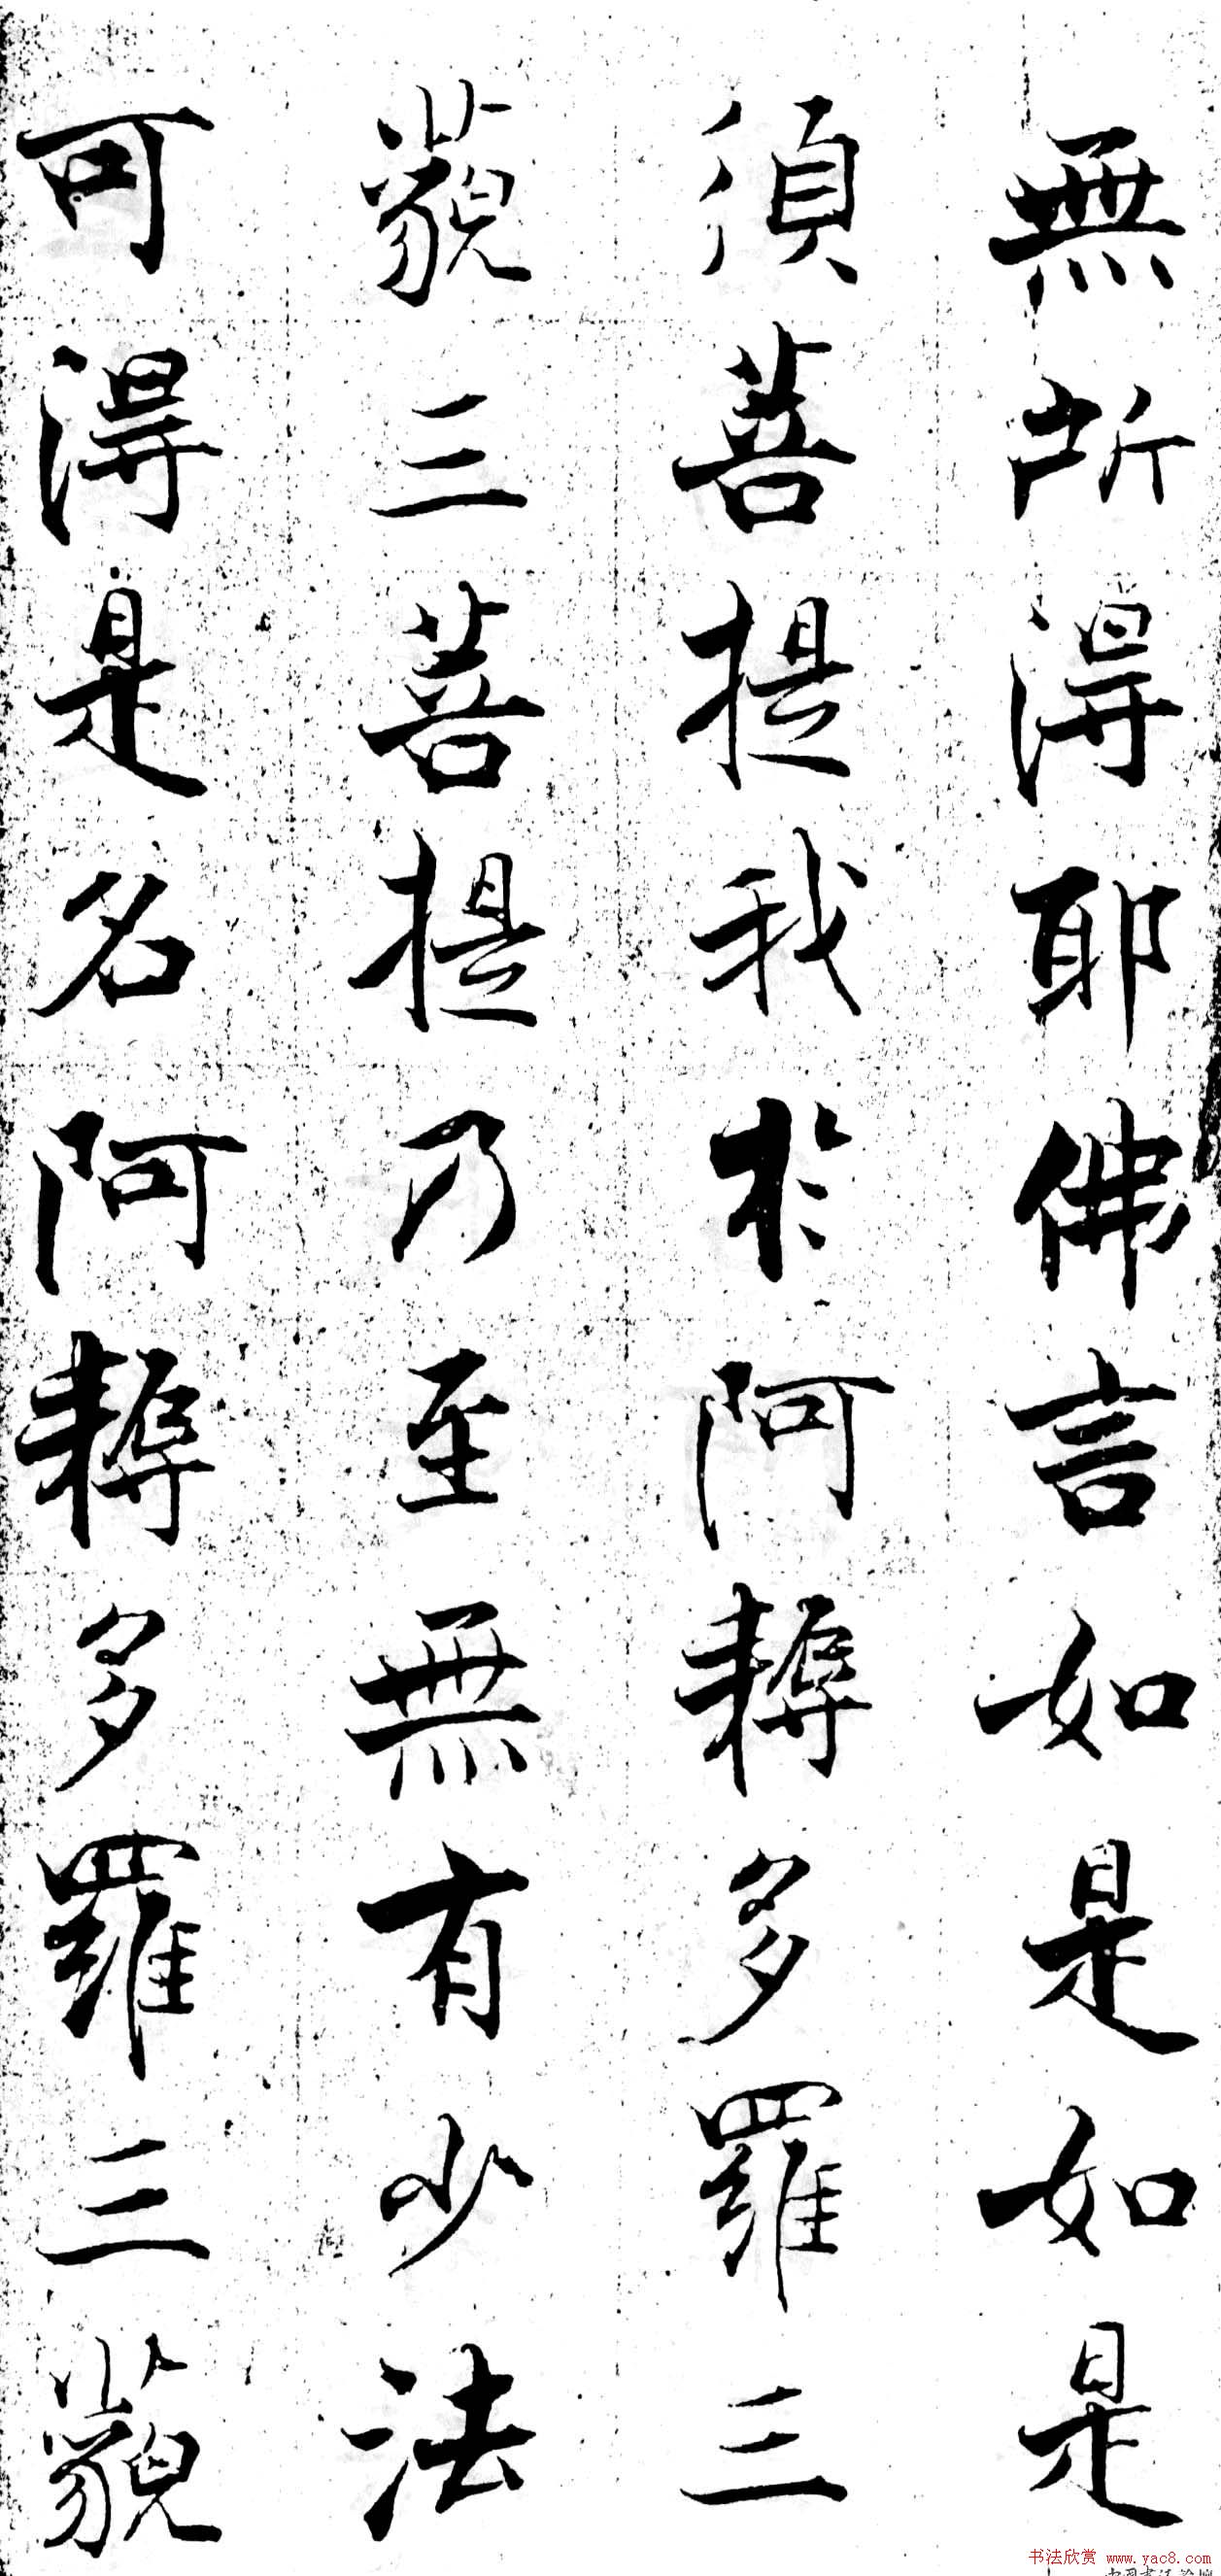 無所得耶佛言如是如是
須菩提我於阿耨多羅三
藐三菩提乃至無有少法
可得是名阿耨多羅三藐
书法欣赏 www.yac8.com